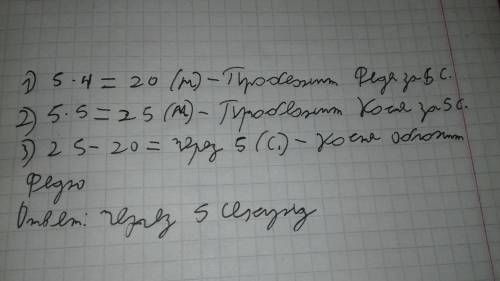 1) 5·4=20 (м) – Пробежит Федя за 5 с.
2) 5·5=25 (м) – Пробежит Костя за 5 с.
3) 25-20= через 5 (с.) – Костя обгонит
Федю
Ответ: через 5 секунд